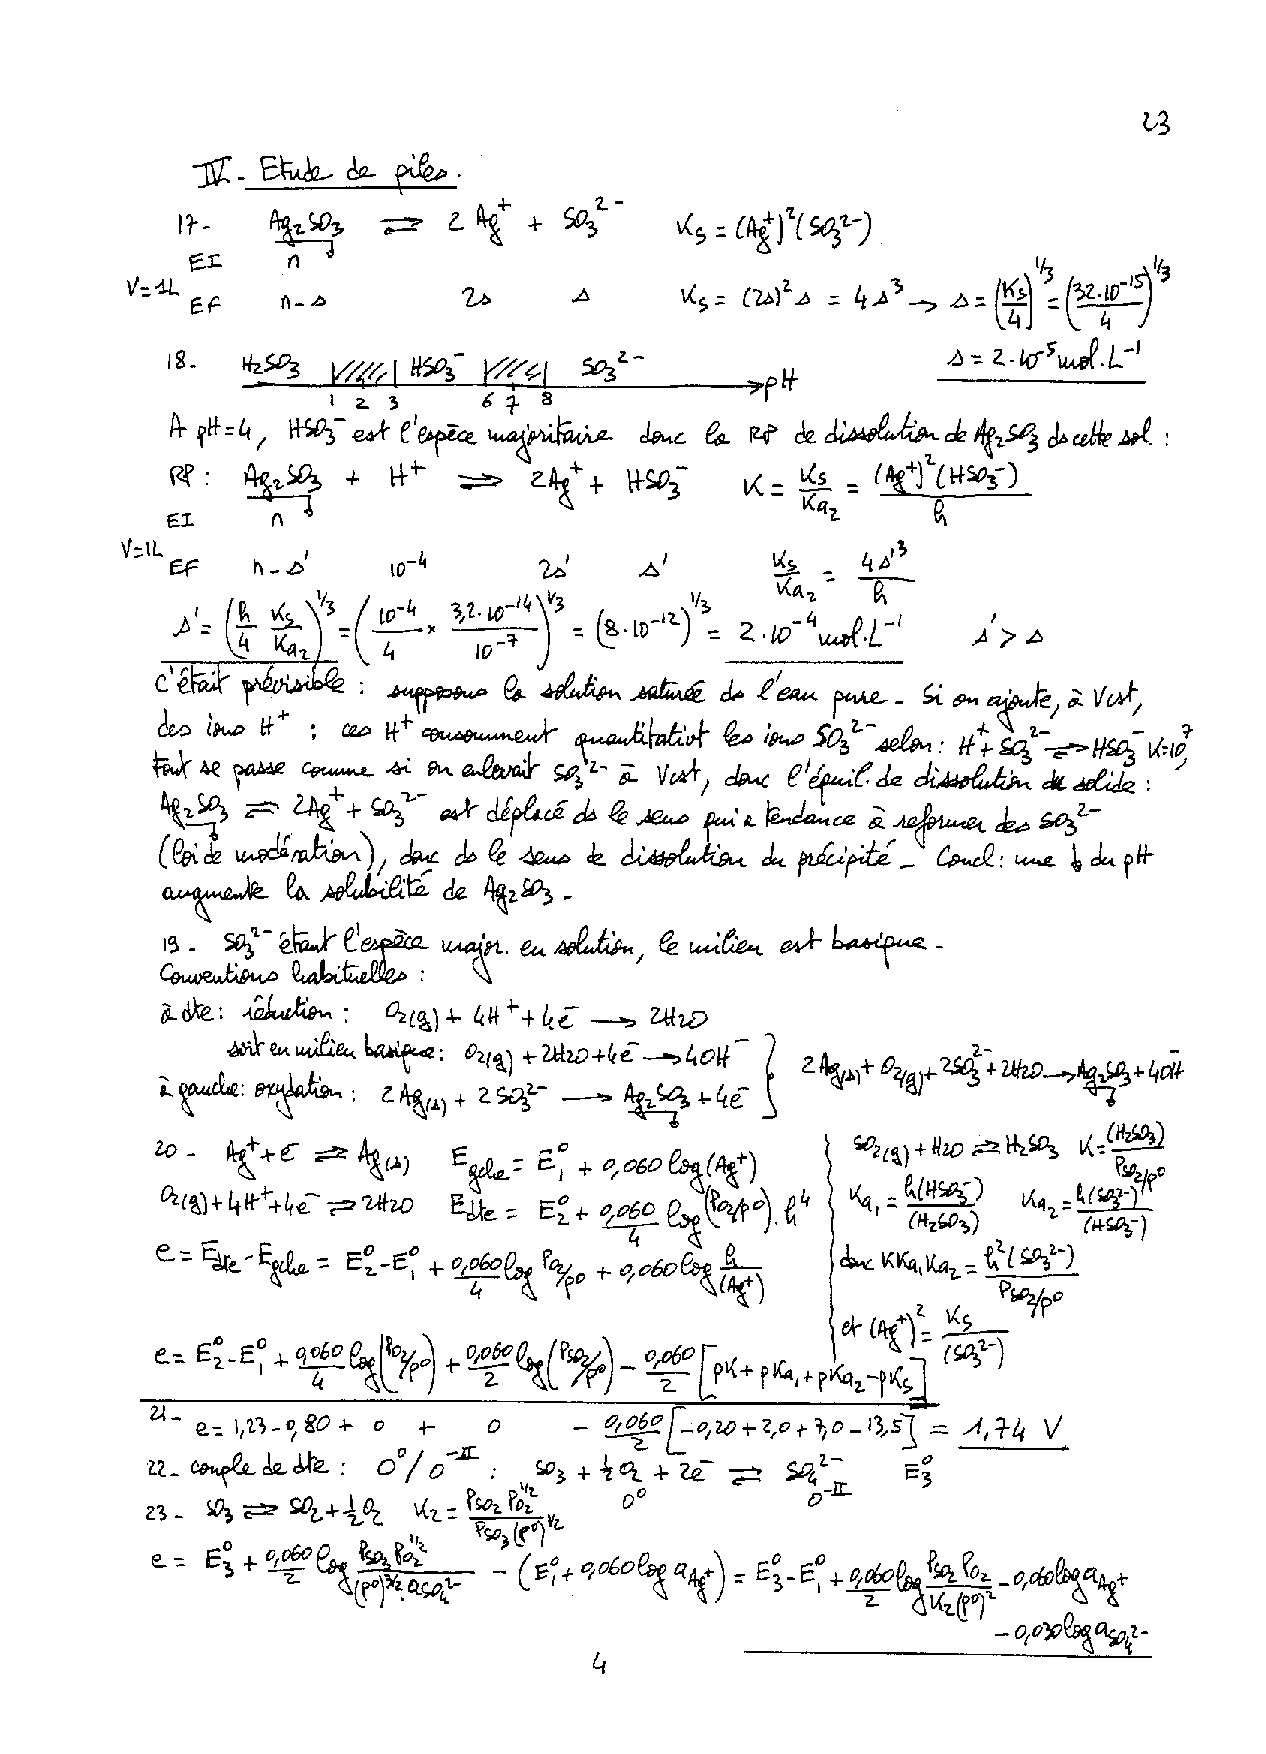 23
IV - Etude de piles.
17- Ag2SO3 ⇌ 2 Ag+ + SO3^2- Ks = (Ag+)^2(SO3^2-)
EI n
V=1L EF n-s 2s s Ks = (2s)^2 s = 4s^3 → s = (Ks/4)^1/3 = (32.10^-15/4)^1/3
18. H2SO3 | HSO3^- | SO3^2- → pH s = 2.10^-5 mol.L^-1
1 2 3 6 7 8
A pH=4, HSO3^- est l'espèce majoritaire donc la RP de dissolution de Ag2SO3 ds cette sol :
RP : Ag2SO3 + H+ ⇌ 2Ag+ + HSO3^- K = Ks/Ka2 = (Ag+)^2(HSO3^-)/h
EI n
V=1L EF n-s' 10^-4 2s' s' Ks/Ka2 = 4s'^3/h
s' = (h/4 Ks/Ka2)^1/3 = (10^-4/4 × 3,2.10^-14/10^-7)^1/3 = (8.10^-12)^1/3 = 2.10^-4 mol.L^-1 s' > s
C'était prévisible : supposons la solution saturée ds l'eau pure - Si on ajoute, à Vcst,
des ions H+ ; ces H+ consomment quantitativt les ions SO3^2- selon : H+ + SO3^2- ⇌ HSO3^- K=10^7,
tout se passe comme si on enlevait SO3^2- à Vcst, donc l'équil. de dissolution du solide :
Ag2SO3 ⇌ 2Ag+ + SO3^2- est déplacé ds le sens qui a tendance à reformer des SO3^2-
(loi de modération), donc ds le sens de dissolution du précipité - Concl : une ↓ du pH
augmente la solubilité de Ag2SO3 -
19 - SO3^2- étant l'espèce major. en solution, le milieu est basique -
Conventions habituelles :
à dte : réduction : O2(g) + 4H+ + 4e- → 2H2O
soit en milieu basique : O2(g) + 2H2O + 4e- → 4OH- } 2Ag(s) + O2(g) + 2SO3^2- + 2H2O → Ag2SO3 + 4OH-
à gauche : oxydation : 2Ag(s) + 2SO3^2- → Ag2SO3 + 4e-
20 - Ag+ + e- ⇌ Ag(s) Egche = E1° + 0,060 log(Ag+) SO2(g) + H2O ⇌ H2SO3 K = (H2SO3)/(PSO2/p°)
O2(g) + 4H+ + 4e- ⇌ 2H2O Edte = E2° + 0,060/4 log(PO2/p°).h^4 Ka1 = h(HSO3^-)/(H2SO3) Ka2 = h(SO3^2-)/(HSO3^-)
e = Edte - Egche = E2° - E1° + 0,060/4 log PO2/p° + 0,060 log h/(Ag+) donc KKa1Ka2 = h^2(SO3^2-)/(PSO2/p°)
et (Ag+)^2 = Ks/(SO3^2-)
e = E2° - E1° + 0,060/4 log(PO2/p°) + 0,060/2 log(PSO2/p°) - 0,060/2 [pK + pKa1 + pKa2 - pKs]
21- e = 1,23 - 0,80 + 0 + 0 - 0,060/2 [-0,20 + 2,0 + 7,0 - 13,5] = 1,74 V
22 - couple de dte : O^0/O^-II : SO3 + ½ O2 + 2e- ⇌ SO4^2- E3°
O^0 O^-II
23 - SO3 ⇌ SO2 + ½ O2 K2 = PSO2 PO2^1/2 / PSO3 (p°)^1/2
e = E3° + 0,060/2 log PSO3 PO2^1/2 / (p°)^3/2 . aSO4^2- - (E1° + 0,060 log aAg+) = E3° - E1° + 0,060/2 log PSO2 PO2 / K2(p°)^2 - 0,060 log aAg+
- 0,030 log aSO4^2-
4